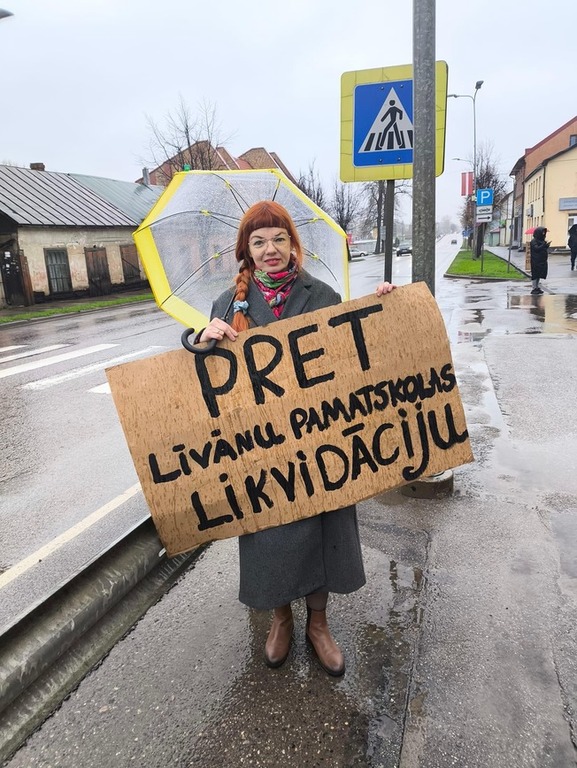 PRET
LĪVĀNU PAMATSKOLAS
LIKVIDĀCIJU
P